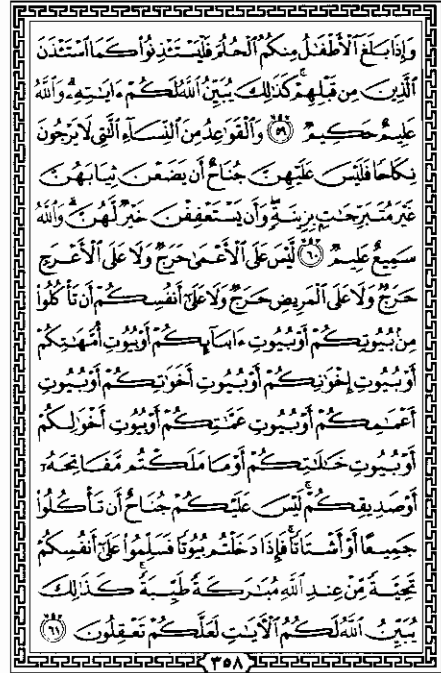 وَإِذَا بَلَغَ ٱلْأَطْفَٰلُ مِنكُمُ ٱلْحُلُمَ فَلْيَسْتَـْٔذِنُوا۟ كَمَا ٱسْتَـْٔذَنَ
ٱلَّذِينَ مِن قَبْلِهِمْ ۚ كَذَٰلِكَ يُبَيِّنُ ٱللَّهُ لَكُمْ ءَايَٰتِهِۦ ۗ وَٱللَّهُ
عَلِيمٌ حَكِيمٌ ٥٩ وَٱلْقَوَٰعِدُ مِنَ ٱلنِّسَآءِ ٱلَّٰتِى لَا يَرْجُونَ
نِكَاحًا فَلَيْسَ عَلَيْهِنَّ جُنَاحٌ أَن يَضَعْنَ ثِيَابَهُنَّ
غَيْرَ مُتَبَرِّجَٰتٍۭ بِزِينَةٍ ۖ وَأَن يَسْتَعْفِفْنَ خَيْرٌ لَّهُنَّ ۗ وَٱللَّهُ
سَمِيعٌ عَلِيمٌ ٦٠ لَّيْسَ عَلَى ٱلْأَعْمَىٰ حَرَجٌ وَلَا عَلَى ٱلْأَعْرَجِ
حَرَجٌ وَلَا عَلَى ٱلْمَرِيضِ حَرَجٌ وَلَا عَلَىٰٓ أَنفُسِكُمْ أَن تَأْكُلُوا۟
مِنۢ بُيُوتِكُمْ أَوْ بُيُوتِ ءَابَآئِكُمْ أَوْ بُيُوتِ أُمَّهَٰتِكُمْ
أَوْ بُيُوتِ إِخْوَٰنِكُمْ أَوْ بُيُوتِ أَخَوَٰتِكُمْ أَوْ بُيُوتِ
أَعْمَٰمِكُمْ أَوْ بُيُوتِ عَمَّٰتِكُمْ أَوْ بُيُوتِ أَخْوَٰلِكُمْ
أَوْ بُيُوتِ خَٰلَٰتِكُمْ أَوْ مَا مَلَكْتُم مَّفَاتِحَهُۥٓ
أَوْ صَدِيقِكُمْ ۚ لَيْسَ عَلَيْكُمْ جُنَاحٌ أَن تَأْكُلُوا۟
جَمِيعًا أَوْ أَشْتَاتًا ۚ فَإِذَا دَخَلْتُم بُيُوتًا فَسَلِّمُوا۟ عَلَىٰٓ أَنفُسِكُمْ
تَحِيَّةً مِّنْ عِندِ ٱللَّهِ مُبَٰرَكَةً طَيِّبَةً ۚ كَذَٰلِكَ
يُبَيِّنُ ٱللَّهُ لَكُمُ ٱلْءَايَٰتِ لَعَلَّكُمْ تَعْقِلُونَ ٦١
٣٥٨